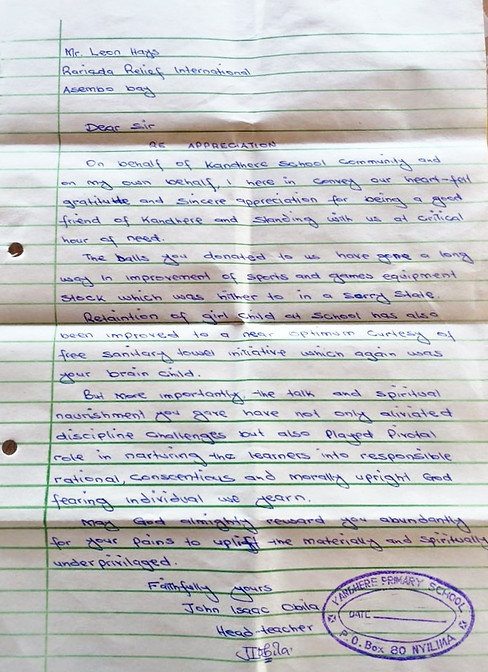 Mr. Leon Hays
Rarieda Relief International
Asembo bay
Dear Sir
RE APPRECIATION
On behalf of Kandhere School community and
on my own behalf, I here in convey our heart-felt
gratitude and sincere appreciation for being a good
friend of Kandhere and standing with us at critical
hour of need.
The balls you donated to us have gone a long
way in improvement of sports and games equipment
stock which was hither to in a sorry state.
Retaintion of girl child at school has also
been improved to a near optimum curtesy of
free sanitary towel initiative which again was
your brain child.
But more importantly the talk and spiritual
naurishment you gave have not only aliviated
discipline challenges but also Played Pivotal
role in narturing the learners into responsible
rational, conscentious and morally upright God
fearing individual we yearn.
May God almighty reward you abundantly
for your pains to uplift the materially and spiritually
underprivilaged.
Faithfully yours
John Isaac Obila
Head-teacher
KANDHERE PRIMARY SCHOOL
DATE
P.O. Box 80 NYILIMA